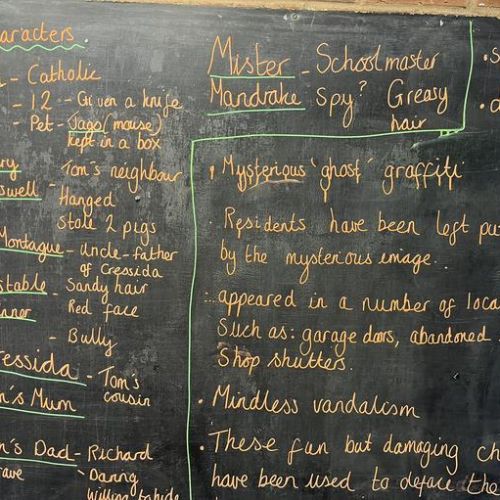 aracters
- Catholic
- 12 - Given a knife
- Pet - Jago (mouse)
kept in a box
Tom's neighbour
swell
Hanged
Stole 2 pigs
Montague - Uncle - father
of Cressida
stable - Sandy hair
Red face
- Bully
ressida - Tom's
cousin
's Mum
's Dad - Richard
rave
Daring
Willing to hide
Mister - Schoolmaster
Mandrake Spy? Greasy
hair
• Mysterious 'ghost' graffiti
Residents have been left pu
by the mysterious image.
appeared in a number of loca
Such as: garage doors, abandoned
Shop shutters.
• Mindless vandalism
• These fun but damaging ch
have been used to deface the